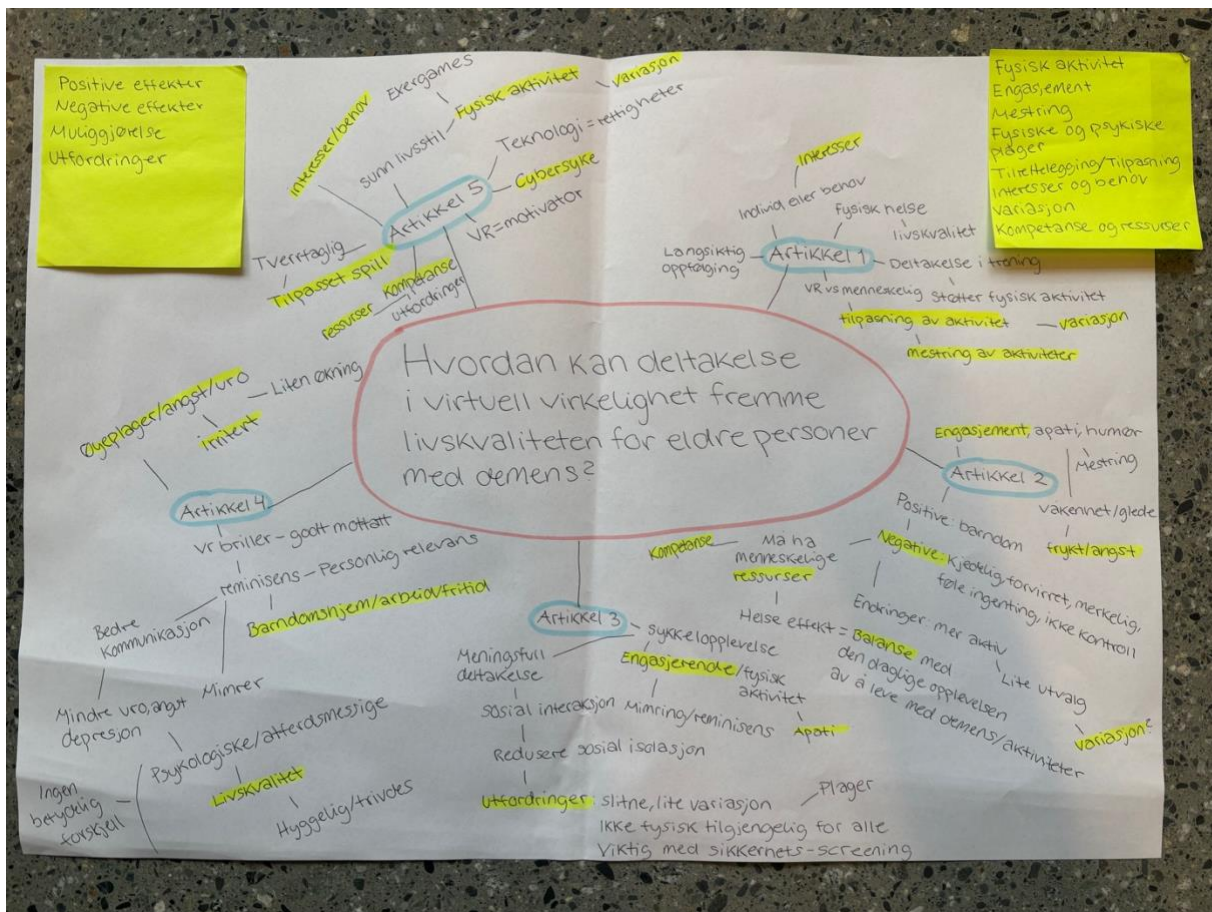 Positive effekter
Negative effekter
Muliggjørelse
Utfordringer
Fysisk aktivitet
Engasjement
Mestring
Fysiske og psykiske
plager
Tilrettelegging/Tilpasning
Interesser og behov
variasjon
Kompetanse og ressurser
Hvordan kan deltakelse
i virtuell virkelighet fremme
livskvaliteten for eldre personer
med demens?
Artikkel 5
Interesser/behov
Exergames
sunn livsstil
Fysisk aktivitet
variasjon
Teknologi = rettigheter
Cybersyke
VR=motivator
Tverrfaglig
Tilpasset spill
ressurser
Kompetanse
utfordringer
Artikkel 1
Interesser
Individ eller behov
Fysisk helse
livskvalitet
Langsiktig
oppfølging
Deltakelse i trening
VR vs menneskelig
støtter fysisk aktivitet
tilpasning av aktivitet
variasjon
mestring av aktiviteter
Artikkel 2
Engasjement, apati, humør
Mestring
vakenhet/glede
frykt/angst
Positive: barndom
Negative: Kjedelig, forvirret, merkelig,
føle ingenting, ikke kontroll
Må ha
menneskelige
ressurser
Kompetanse
Helse effekt = Balanse med
den daglige opplevelsen
av å leve med demens/aktiviteter
Endringer: mer aktiv
Lite utvalg
variasjon?
Artikkel 3
Sykkelopplevelse
Engasjerende/fysisk
aktivitet
Mimring/reminisens
Apati
Meningsfull
deltakelse
sosial interaksjon
Redusere sosial isolasjon
Utfordringer: slitne, lite variasjon
Plager
Ikke fysisk tilgjengelig for alle
Viktig med sikkerhets-screening
Artikkel 4
Øyeplager/angst/uro
Liten økning
irritert
Vr briller - godt mottatt
reminisens - Personlig relevans
Barndomshjem/arbeid/fritid
Bedre
Kommunikasjon
Mimrer
Mindre uro, angst
depresjon
Psykologiske/atferdsmessige
Livskvalitet
Hyggelig/trivdes
Ingen
betydelig
forskjell